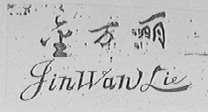 金万丽
JinWanLie